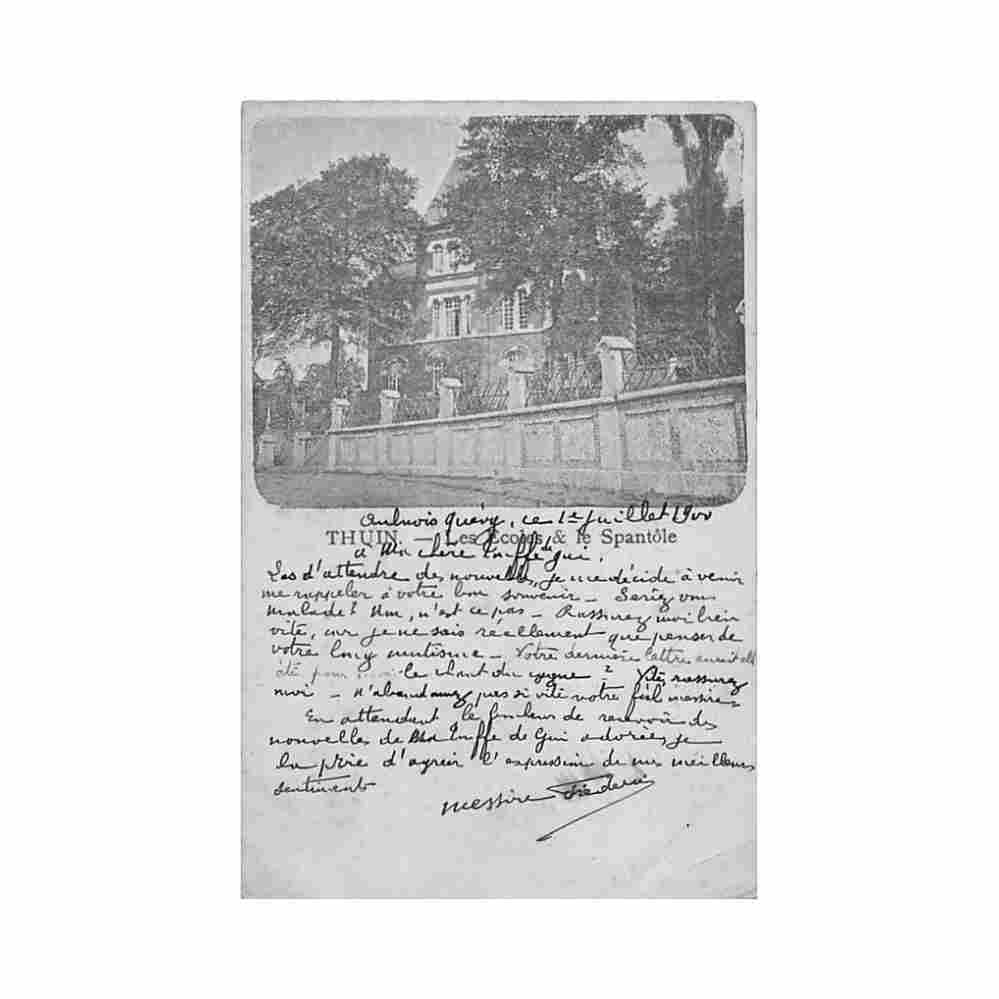 Aulnois Quévy, ce 1er juillet 1900
THUIN. — Les Écoles & le Spantôle
à Ma chère Truffe de Gui.
Las d'attendre des nouvelles, je me décide à venir
me rappeler à votre bon souvenir — Seriez vous
malade? Non, n'est ce pas — Rassurez moi bien
vite, car je ne sais réellement que penser de
votre long mutisme — Votre dernière lettre aurait elle
été pour moi le chant du cygne? Vite, rassurez
moi — n'abandonnez pas si vite votre féal messire
En attendant le de recevoir des
nouvelles de Ma Truffe de Gui adorée, je
la prie d'agréer l'expression de mes meilleurs
sentiments
messire